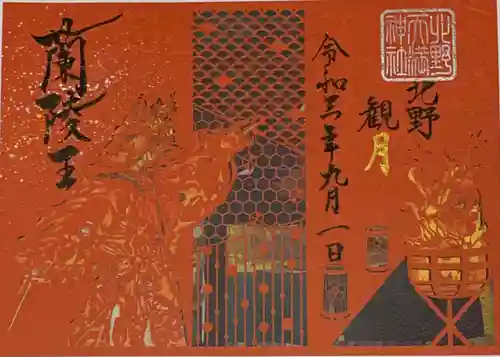 北野
天満
神社
北野
観月
令和三年九月一日
蘭陵王